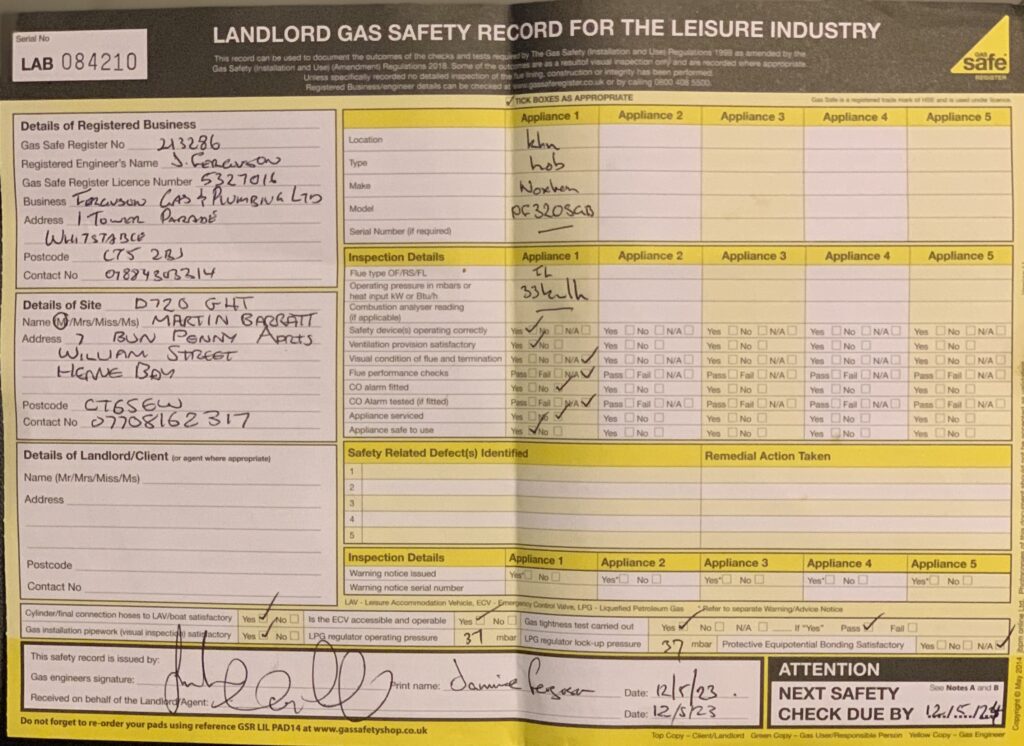 Serial No
LAB 084210
LANDLORD GAS SAFETY RECORD FOR THE LEISURE INDUSTRY
This record can be used to document the outcomes of the checks and tests required by The Gas Safety (Installation and Use) Regulations 1998 as amended by the
Gas Safety (Installation and Use) (Amendment) Regulations 2018. Some of the outcomes are as a result of visual inspection only and are recorded where appropriate.
Unless specifically recorded no detailed inspection of the flue lining, construction or integrity has been performed.
Registered Business/engineer details can be checked at www.gassaferegister.co.uk or by calling 0800 408 5500.
GAS
safe
REGISTER
✓ TICK BOXES AS APPROPRIATE
Gas Safe is a registered trade mark of HSE and is used under licence.
Details of Registered Business
Gas Safe Register No 213286
Registered Engineer's Name J. FERGUSON
Gas Safe Register Licence Number 5327016
Business FERGUSON GAS & PLUMBING LTD
Address 1 TOWER PARADE
WHITSTABLE
Postcode CT5 2BJ
Contact No 07884303314
Details of Site D720 GHT
Name (Mr/Mrs/Miss/Ms) MARTIN BARRATT
Address 7 BUN PENNY APRTS
WILLIAM STREET
HERNE BAY
Postcode CT65EW
Contact No 07708162317
Details of Landlord/Client (or agent where appropriate)
Name (Mr/Mrs/Miss/Ms)
Address
Postcode
Contact No
Appliance 1 Appliance 2 Appliance 3 Appliance 4 Appliance 5
Location khn
Type hob
Make
Model PC320SGB
Serial Number (if required)
Inspection Details Appliance 1 Appliance 2 Appliance 3 Appliance 4 Appliance 5
Flue type OF/RS/FL FL
Operating pressure in mbars or
heat input kW or Btu/h
Combustion analyser reading
(if applicable)
Safety device(s) operating correctly Yes ✓ No N/A Yes No N/A Yes No N/A Yes No N/A Yes No N/A
Ventilation provision satisfactory Yes ✓ No Yes No Yes No Yes No Yes No
Visual condition of flue and termination Yes No N/A ✓ Yes No N/A Yes No N/A Yes No N/A Yes No N/A
Flue performance checks Pass Fail N/A ✓ Pass Fail N/A Pass Fail N/A Pass Fail N/A Pass Fail N/A
CO alarm fitted Yes No ✓ Yes No Yes No Yes No Yes No
CO Alarm tested (if fitted) Pass Fail N/A ✓ Pass Fail N/A Pass Fail N/A Pass Fail N/A Pass Fail N/A
Appliance serviced Yes No ✓ Yes No Yes No Yes No Yes No
Appliance safe to use Yes ✓ No Yes No Yes No Yes No Yes No
Safety Related Defect(s) Identified Remedial Action Taken
1
2
3
4
5
Inspection Details Appliance 1 Appliance 2 Appliance 3 Appliance 4 Appliance 5
Warning notice issued Yes* No Yes* No Yes* No Yes* No Yes* No
Warning notice serial number
LAV - Leisure Accommodation Vehicle, ECV - Emergency Control Valve, LPG - Liquefied Petroleum Gas *Refer to separate Warning/Advice Notice
Cylinder/final connection hoses to LAV/boat satisfactory Yes ✓ No Is the ECV accessible and operable Yes ✓ No Gas tightness test carried out Yes ✓ No N/A If "Yes" Pass ✓ Fail
Gas installation pipework (visual inspection) satisfactory Yes ✓ No LPG regulator operating pressure 37 mbar LPG regulator lock-up pressure 37 mbar Protective Equipotential Bonding Satisfactory Yes No N/A ✓
This safety record is issued by:
Gas engineers signature: Print name: Ferguson Date: 12/5/23
Received on behalf of the Landlord/Agent: Date: 12/5/23
ATTENTION
NEXT SAFETY
CHECK DUE BY 12/5/24
See Notes A and B
Do not forget to re-order your pads using reference GSR LIL PAD14 at www.gassafetyshop.co.uk
Top Copy – Client/Landlord Green Copy – Gas User/Responsible Person Yellow Copy – Gas Engineer